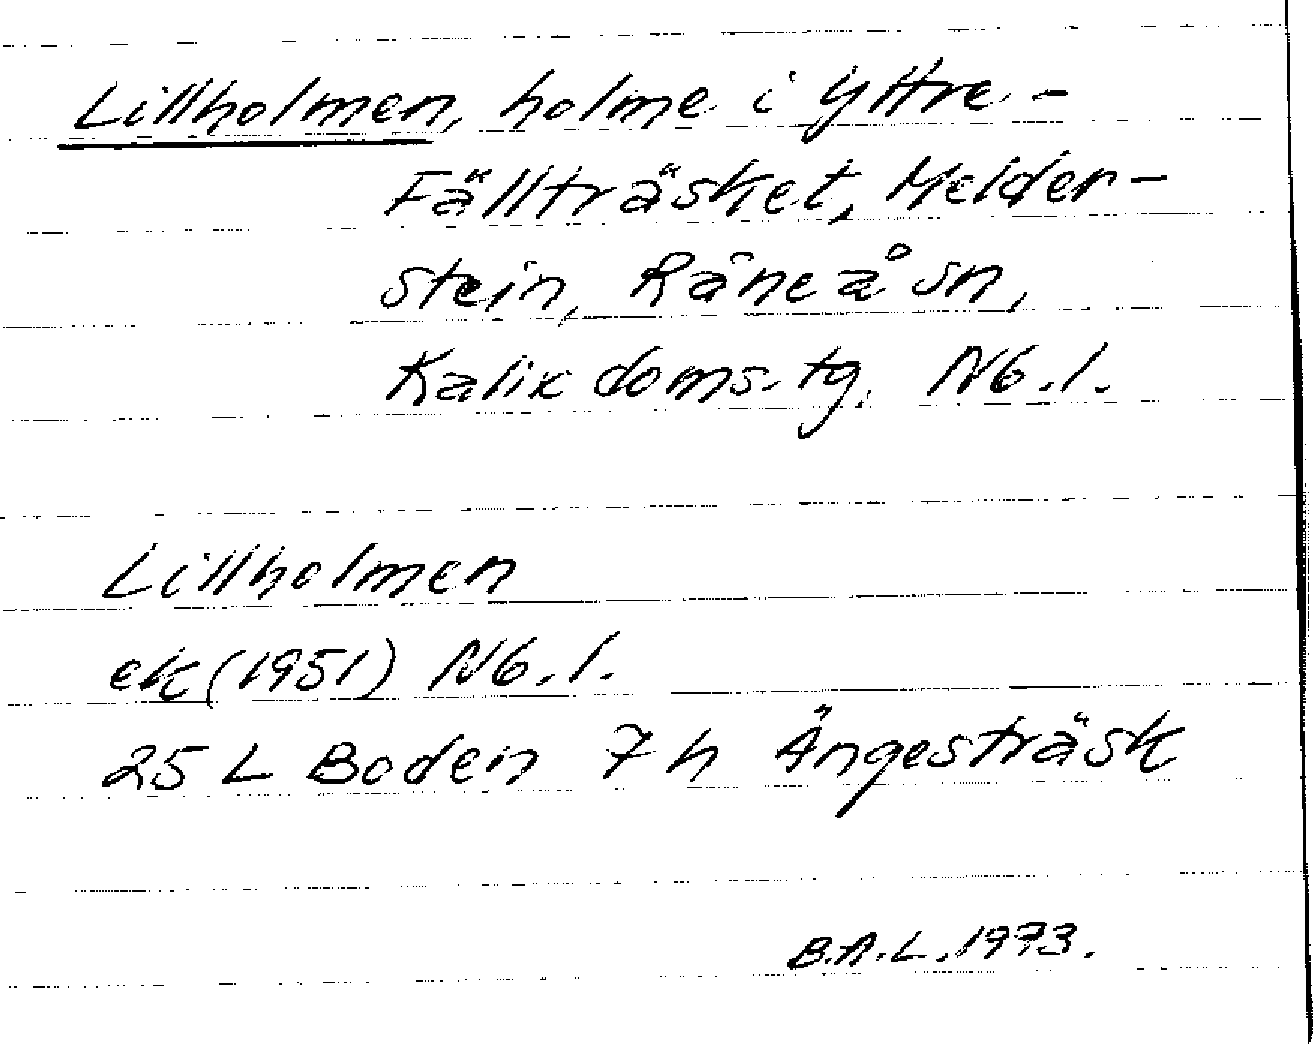 Lillholmen, holme i Yttre-
Fällträsket, Melder-
stein, Råneå sn,
Kalix doms.tg. Nb.l.
Lillholmen
ek (1951) Nb.l.
25 L Boden 7 h Ängesträsk
B.A.L. 1973.